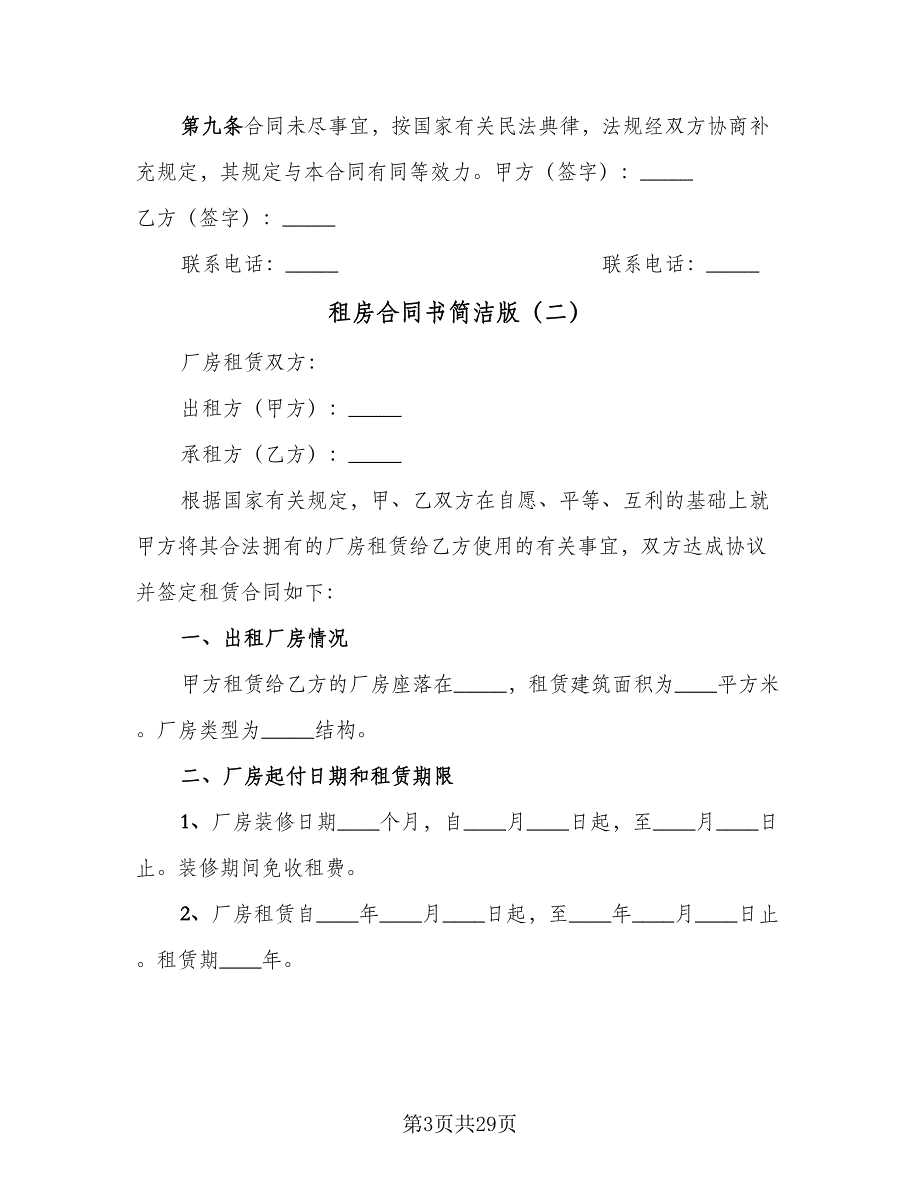 第九条合同未尽事宜，按国家有关民法典律，法规经双方协商补
充规定，其规定与本合同有同等效力。甲方（签字）：_____
乙方（签字）：_____
联系电话：_____ 联系电话：_____
租房合同书简洁版（二）
厂房租赁双方：
出租方（甲方）：_____
承租方（乙方）：_____
根据国家有关规定，甲、乙双方在自愿、平等、互利的基础上就
甲方将其合法拥有的厂房租赁给乙方使用的有关事宜，双方达成协议
并签定租赁合同如下：
一、出租厂房情况
甲方租赁给乙方的厂房座落在_____，租赁建筑面积为____平方米
。厂房类型为_____结构。
二、厂房起付日期和租赁期限
1、厂房装修日期____个月，自____月____日起，至____月____日
止。装修期间免收租费。
2、厂房租赁自____年____月____日起，至____年____月____日止
。租赁期____年。
第3页共29页